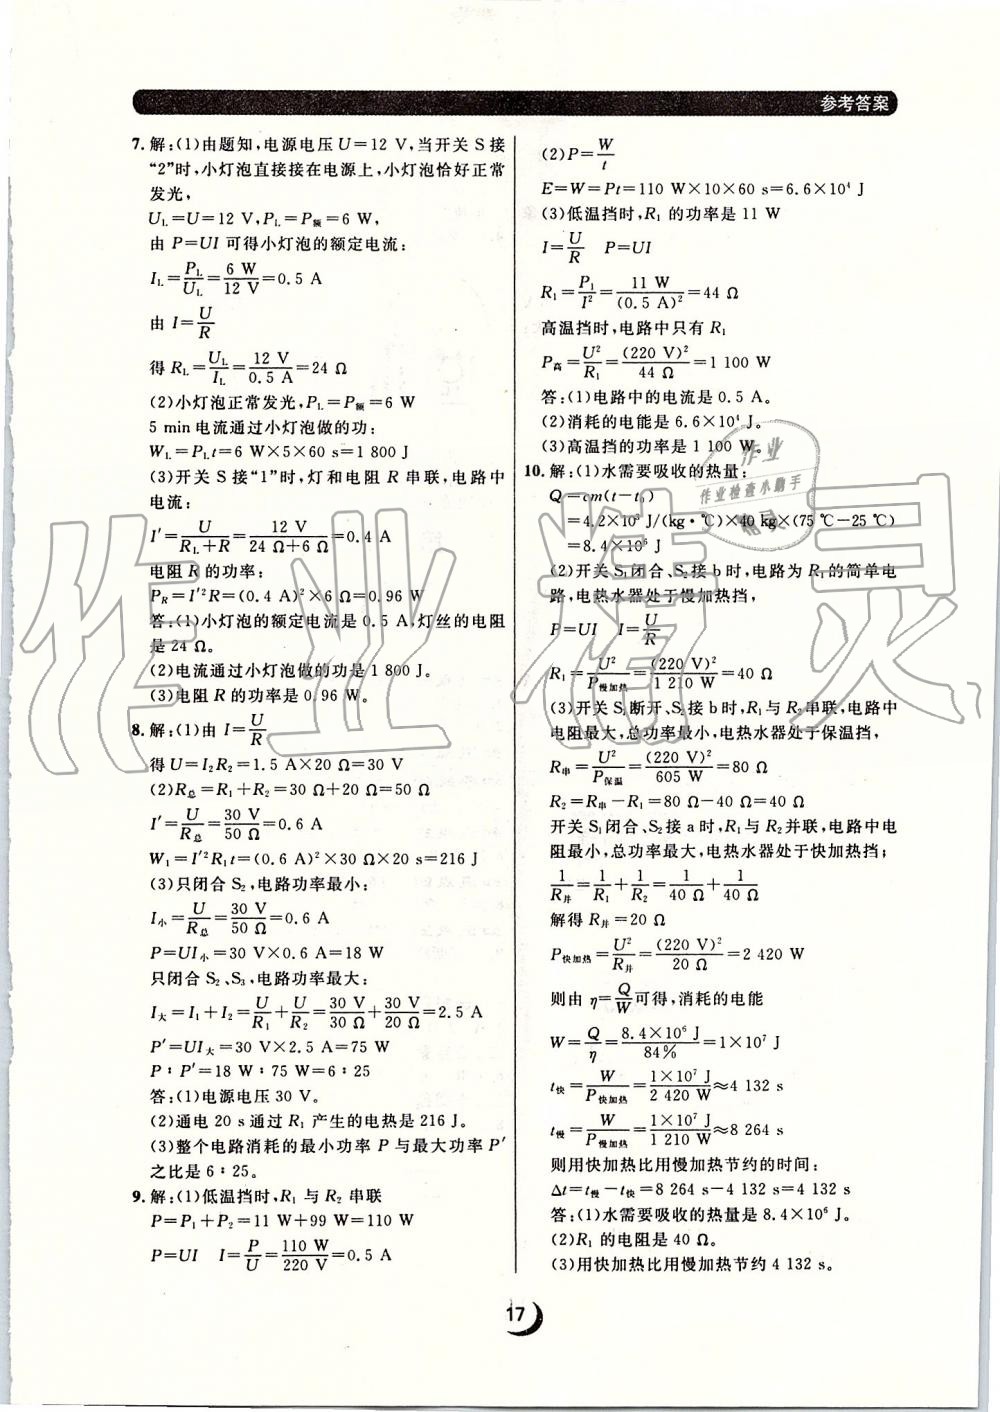 参考答案
7. 解:(1)由题知,电源电压U=12 V,当开关 S 接
“2”时,小灯泡直接接在电源上,小灯泡恰好正常
发光,
U_L=U=12 V,P_L=P_额=6 W,
由 P=UI 可得小灯泡的额定电流:
I_L=P_L/U_L=6 W/12 V=0.5 A
由 I=U/R
得 R_L=U_L/I_L=12 V/0.5 A=24 Ω
(2)小灯泡正常发光,P_L=P_额=6 W
5 min 电流通过小灯泡做的功:
W_L=P_Lt=6 W×5×60 s=1 800 J
(3)开关 S 接“1”时,灯和电阻 R 串联,电路中
电流:
I′=U/(R_L+R)=12 V/(24 Ω+6 Ω)=0.4 A
电阻 R 的功率:
P_R=I′²R=(0.4 A)²×6 Ω=0.96 W
答:(1)小灯泡的额定电流是 0.5 A,灯丝的电阻
是 24 Ω。
(2)电流通过小灯泡做的功是 1 800 J。
(3)电阻 R 的功率是 0.96 W。
8. 解:(1)由 I=U/R
得 U=I₂R₂=1.5 A×20 Ω=30 V
(2)R_总=R₁+R₂=30 Ω+20 Ω=50 Ω
I′=U/R_总=30 V/50 Ω=0.6 A
W₁=I′²R₁t=(0.6 A)²×30 Ω×20 s=216 J
(3)只闭合 S₂,电路功率最小:
I_小=U/R_总=30 V/50 Ω=0.6 A
P=UI_小=30 V×0.6 A=18 W
只闭合 S₂、S₃,电路功率最大:
I_大=I₁+I₂=U/R₁+U/R₂=30 V/30 Ω+30 V/20 Ω=2.5 A
P′=UI_大=30 V×2.5 A=75 W
P∶P′=18 W∶75 W=6∶25
答:(1)电源电压 30 V。
(2)通电 20 s 通过 R₁ 产生的电热是 216 J。
(3)整个电路消耗的最小功率 P 与最大功率 P′
之比是 6∶25。
9. 解:(1)低温挡时,R₁ 与 R₂ 串联
P=P₁+P₂=11 W+99 W=110 W
P=UI I=P/U=110 W/220 V=0.5 A
(2)P=W/t
E=W=Pt=110 W×10×60 s=6.6×10⁴ J
(3)低温挡时,R₁ 的功率是 11 W
I=U/R P=UI
R₁=P₁/I²=11 W/(0.5 A)²=44 Ω
高温挡时,电路中只有 R₁
P_高=U²/R₁=(220 V)²/44 Ω=1 100 W
答:(1)电路中的电流是 0.5 A。
(2)消耗的电能是 6.6×10⁴ J。
(3)高温挡的功率是 1 100 W。
10. 解:(1)水需要吸收的热量:
Q=cm(t-t₀)
=4.2×10³ J/(kg·℃)×40 kg×(75 ℃-25 ℃)
=8.4×10⁶ J
(2)开关 S₁闭合、S₂接 b 时,电路为 R₁的简单电
路,电热水器处于慢加热挡,
P=UI I=U/R
R₁=U²/P_慢加热=(220 V)²/1 210 W=40 Ω
(3)开关 S₁断开、S₂接 b 时,R₁与 R₂串联,电路中
电阻最大,总功率最小,电热水器处于保温挡,
R_串=U²/P_保温=(220 V)²/605 W=80 Ω
R₂=R_串-R₁=80 Ω-40 Ω=40 Ω
开关 S₁闭合、S₂接 a 时,R₁与 R₂并联,电路中电
阻最小,总功率最大,电热水器处于快加热挡;
1/R_并=1/R₁+1/R₂=1/40 Ω+1/40 Ω
解得 R_并=20 Ω
P_快加热=U²/R_并=(220 V)²/20 Ω=2 420 W
则由 η=Q/W可得,消耗的电能
W=Q/η=8.4×10⁶ J/84%=1×10⁷ J
t_快=W/P_快加热=1×10⁷ J/2 420 W≈4 132 s
t_慢=W/P_慢加热=1×10⁷ J/1 210 W≈8 264 s
则用快加热比用慢加热节约的时间:
Δt=t_慢-t_快=8 264 s-4 132 s=4 132 s
答:(1)水需要吸收的热量是 8.4×10⁶ J。
(2)R₁ 的电阻是 40 Ω。
(3)用快加热比用慢加热节约 4 132 s。
17
作业精灵
作业
作业检查小助手